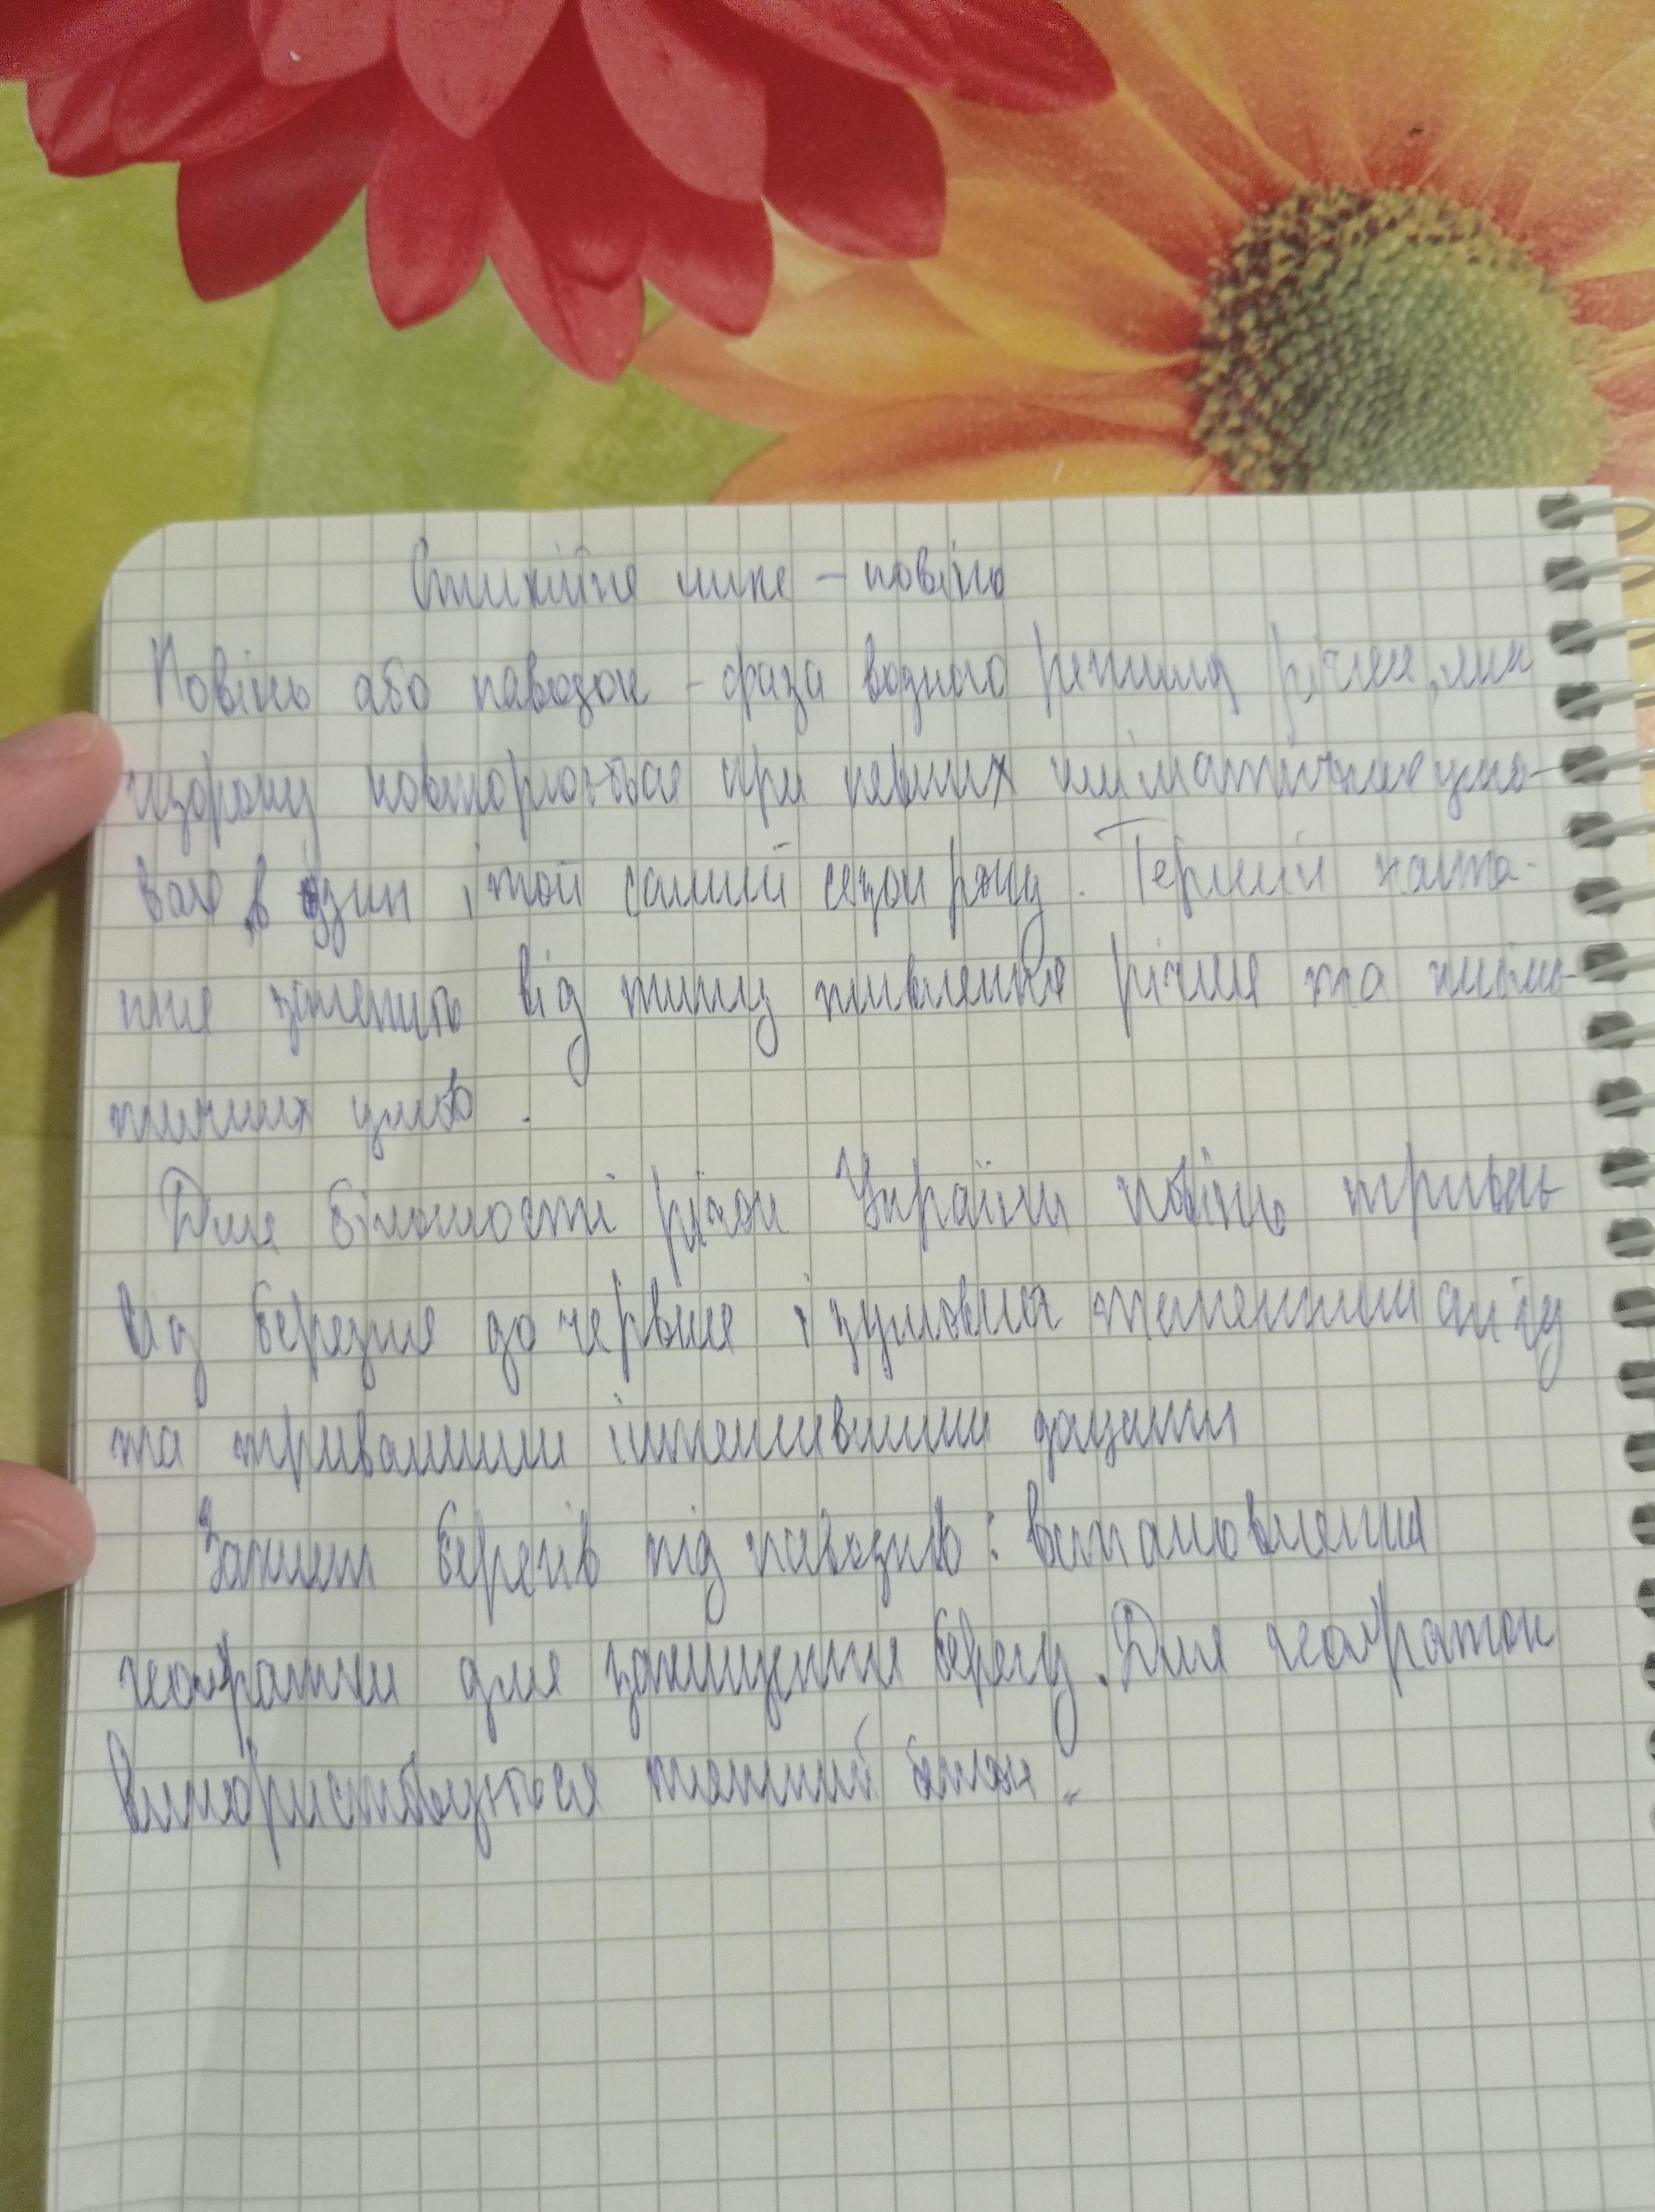 Стихійне лихо – повінь
Повінь або паводок – фаза водного режиму річки, яка
щороку повторюється при певних кліматичних умо-
вах в один і той самий сезон року. Термін наста-
ння залежить від типу живлення річки та кліма-
тичних умов.
Для більшості річок України повінь триває
від березня до червня і зумовлена таненням снігу
та тривалими інтенсивними дощами
Захист берегів від паводків: встановлення
георешітки для захищення берегу. Для георешіток
використовується тканий бетон.